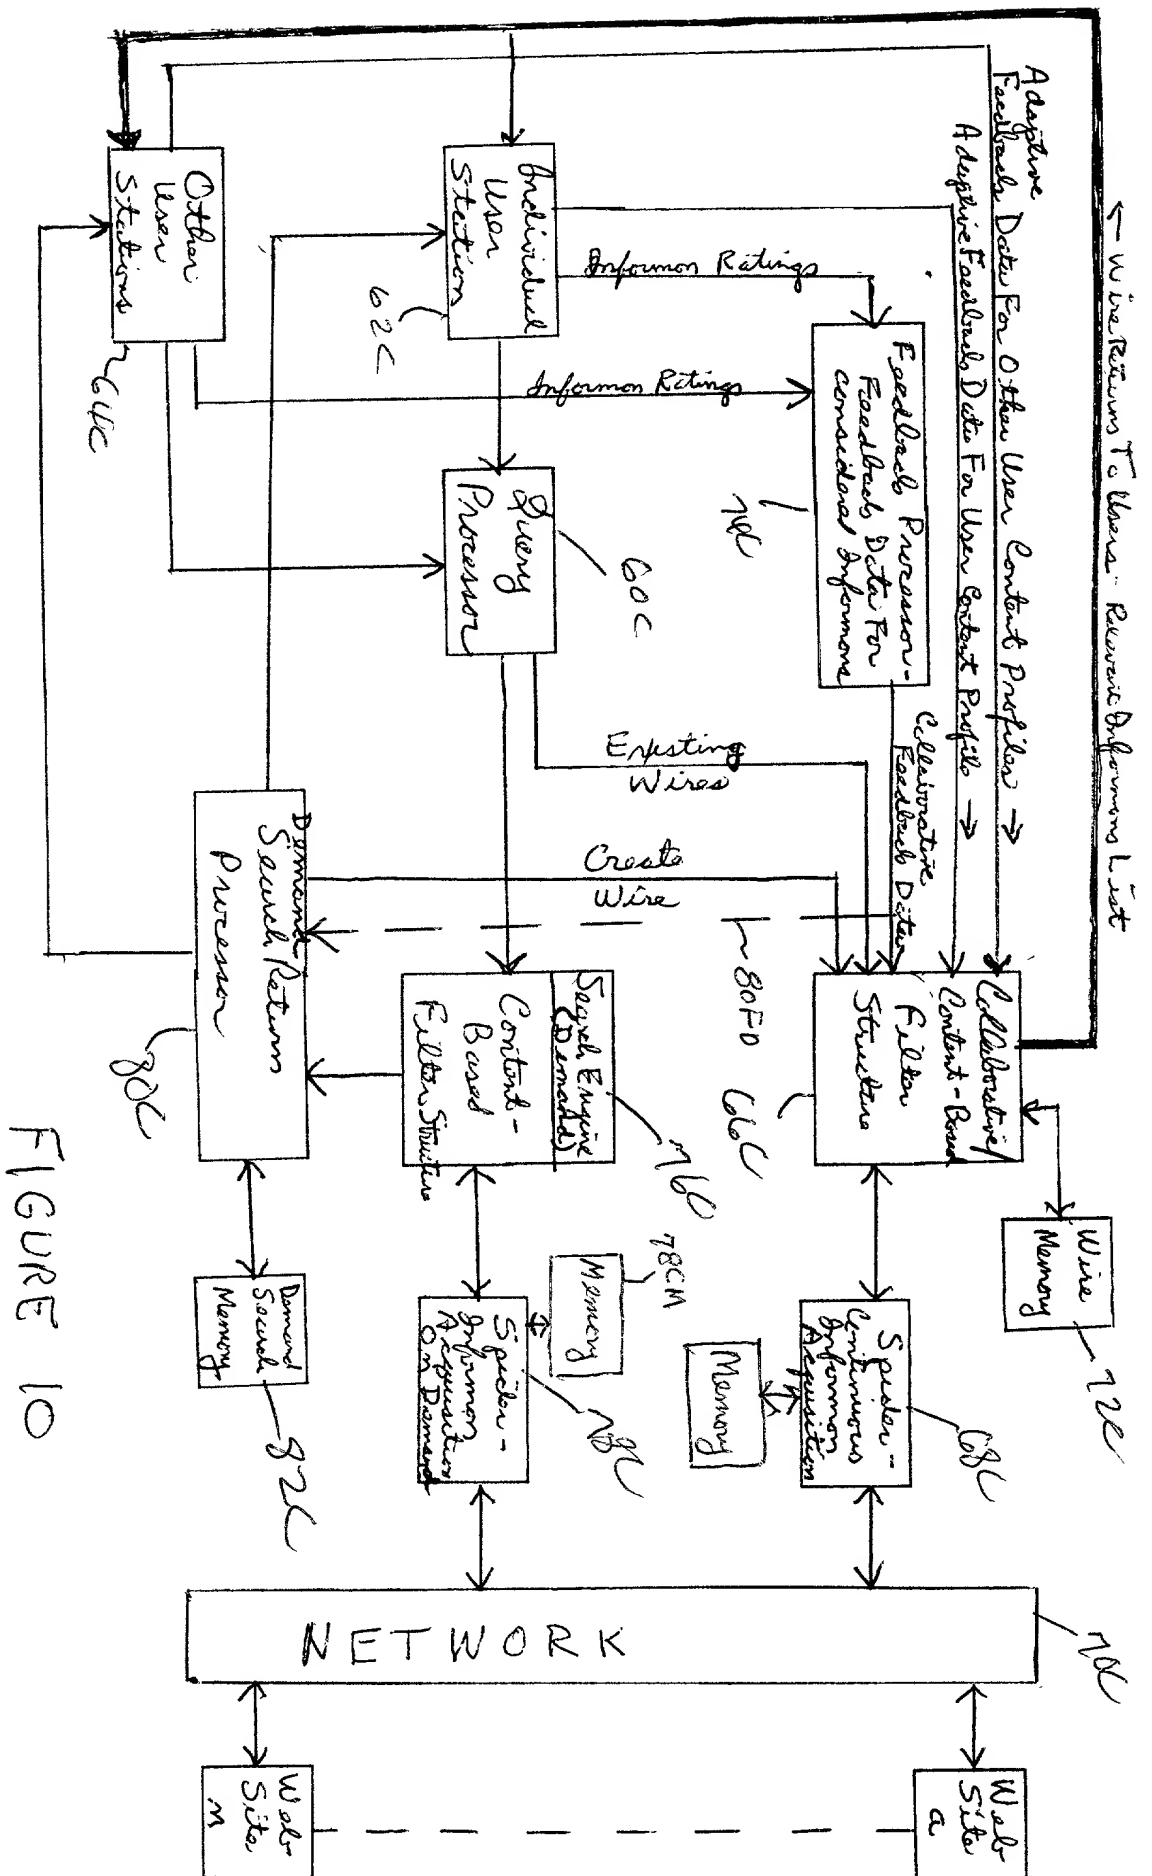 ← Wire Returns To Users - Relevant Informons List
Adaptive
Feedback Data For Other User Content Profiles →
Adaptive Feedback Data For User Content Profile →
Other
User
Stations
64C
Individual
User
Station
62C
Informon Ratings
Informon Ratings
Feedback Processor-
Feedback Data For
Considered Informons
74C
Query
Processor
60C
Existing
Wires
Create
Wire
Collaborative
Feedback Data
80FD
Demand
Search Return
Processor
80C
Search Engine
(Demand)
Content-
Based
Filter Structure
76C
Collaborative/
Content-Based
Filter
Structure
66C
Wire
Memory
72C
Demand
Search
Memory
82C
Memory
78CM
Spider-
Informon
Acquisition
On Demand
78C
Memory
Spider-
Continuous
Informon
Acquisition
68C
NETWORK
70C
Web
Site
a
Web
Site
n
FIGURE 10